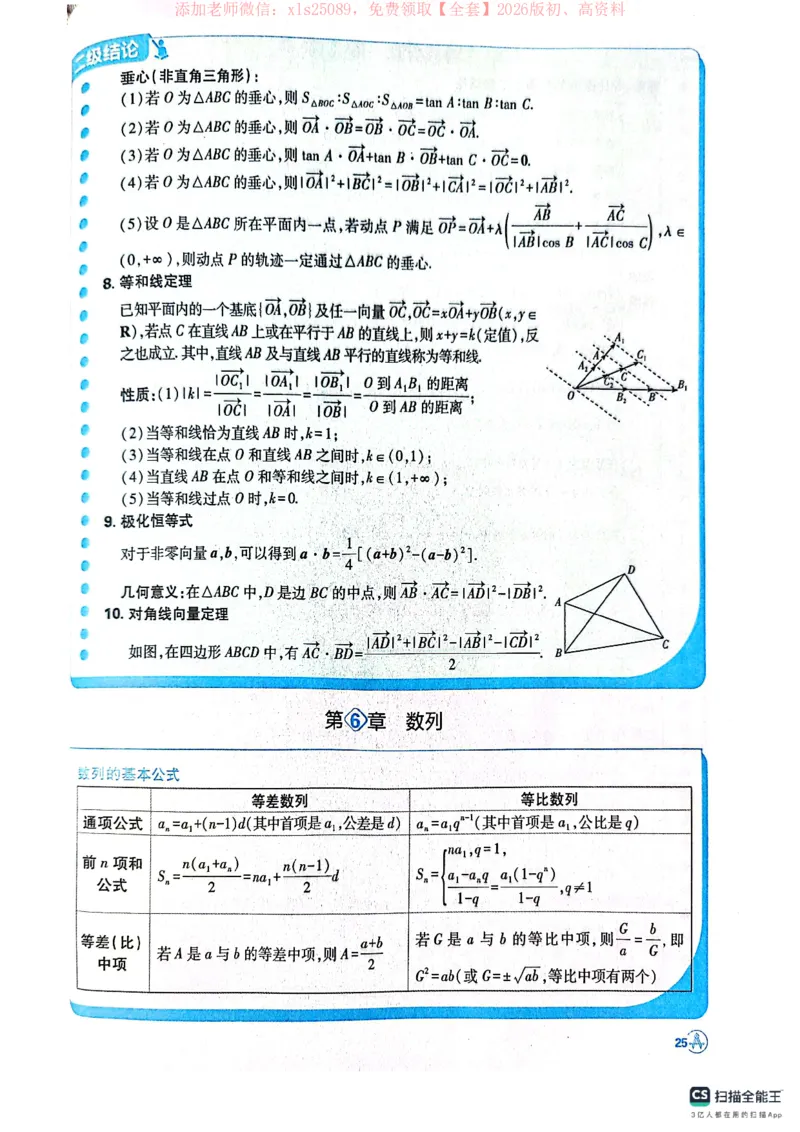 添加老师微信：xls25089，免费领取【全套】2026版初、高资料
二级结论
垂心(非直角三角形)：
(1)若 O 为△ABC 的垂心,则 S△BOC∶S△AOC∶S△AOB=tan A∶tan B∶tan C.
(2)若 O 为△ABC 的垂心,则 $\overrightarrow{OA}·\overrightarrow{OB}=\overrightarrow{OB}·\overrightarrow{OC}=\overrightarrow{OC}·\overrightarrow{OA}$.
(3)若 O 为△ABC 的垂心,则 tan A·$\overrightarrow{OA}$+tan B·$\overrightarrow{OB}$+tan C·$\overrightarrow{OC}$=0.
(4)若 O 为△ABC 的垂心,则$|\overrightarrow{OA}|^2+|\overrightarrow{BC}|^2=|\overrightarrow{OB}|^2+|\overrightarrow{CA}|^2=|\overrightarrow{OC}|^2+|\overrightarrow{AB}|^2$.
(5)设 O 是△ABC 所在平面内一点,若动点 P 满足 $\overrightarrow{OP}=\overrightarrow{OA}+λ\left(\frac{\overrightarrow{AB}}{|\overrightarrow{AB}|\cos B}+\frac{\overrightarrow{AC}}{|\overrightarrow{AC}|\cos C}\right)$,λ∈
(0,+∞),则动点 P 的轨迹一定通过△ABC 的垂心.
8. 等和线定理
已知平面内的一个基底{$\overrightarrow{OA},\overrightarrow{OB}$}及任一向量 $\overrightarrow{OC},\overrightarrow{OC}=x\overrightarrow{OA}+y\overrightarrow{OB}$(x,y∈
R),若点 C 在直线 AB 上或在平行于 AB 的直线上,则 x+y=k(定值),反
之也成立.其中,直线 AB 及与直线 AB 平行的直线称为等和线.
性质：(1)$|k|=\frac{|\overrightarrow{OC_1}|}{|\overrightarrow{OC}|}=\frac{|\overrightarrow{OA_1}|}{|\overrightarrow{OA}|}=\frac{|\overrightarrow{OB_1}|}{|\overrightarrow{OB}|}=\frac{O 到 A_1B_1 的距离}{O 到 AB 的距离}$；
A₁
A
A₂
C₁
C
C₂
O
B₂
B
B₁
(2)当等和线恰为直线 AB 时,k=1；
(3)当等和线在点 O 和直线 AB 之间时,k∈(0,1)；
(4)当直线 AB 在点 O 和等和线之间时,k∈(1,+∞)；
(5)当等和线过点 O 时,k=0.
9. 极化恒等式
对于非零向量 a,b,可以得到 a·b=$\frac{1}{4}$[(a+b)²-(a-b)²].
几何意义：在△ABC 中,D 是边 BC 的中点,则 $\overrightarrow{AB}·\overrightarrow{AC}=|\overrightarrow{AD}|^2-|\overrightarrow{DB}|^2$.
10. 对角线向量定理
如图,在四边形 ABCD 中,有 $\overrightarrow{AC}·\overrightarrow{BD}=\frac{|\overrightarrow{AD}|^2+|\overrightarrow{BC}|^2-|\overrightarrow{AB}|^2-|\overrightarrow{CD}|^2}{2}$.
D
A
B
C
第6章 数列
数列的基本公式
等差数列 等比数列
通项公式 aₙ=a₁+(n-1)d(其中首项是 a₁,公差是 d) aₙ=a₁qⁿ⁻¹(其中首项是 a₁,公比是 q)
前 n 项和
公式
$S_n=\frac{n(a_1+a_n)}{2}=na_1+\frac{n(n-1)}{2}d$
$S_n=\begin{cases}na_1,q=1,\\\frac{a_1-a_nq}{1-q}=\frac{a_1(1-q^n)}{1-q},q≠1\end{cases}$
等差(比)
中项
若 A 是 a 与 b 的等差中项,则 $A=\frac{a+b}{2}$
若 G 是 a 与 b 的等比中项,则$\frac{G}{a}=\frac{b}{G}$,即
G²=ab(或 G=±$\sqrt{ab}$,等比中项有两个)
25
CS 扫描全能王
3亿人都在用的扫描App